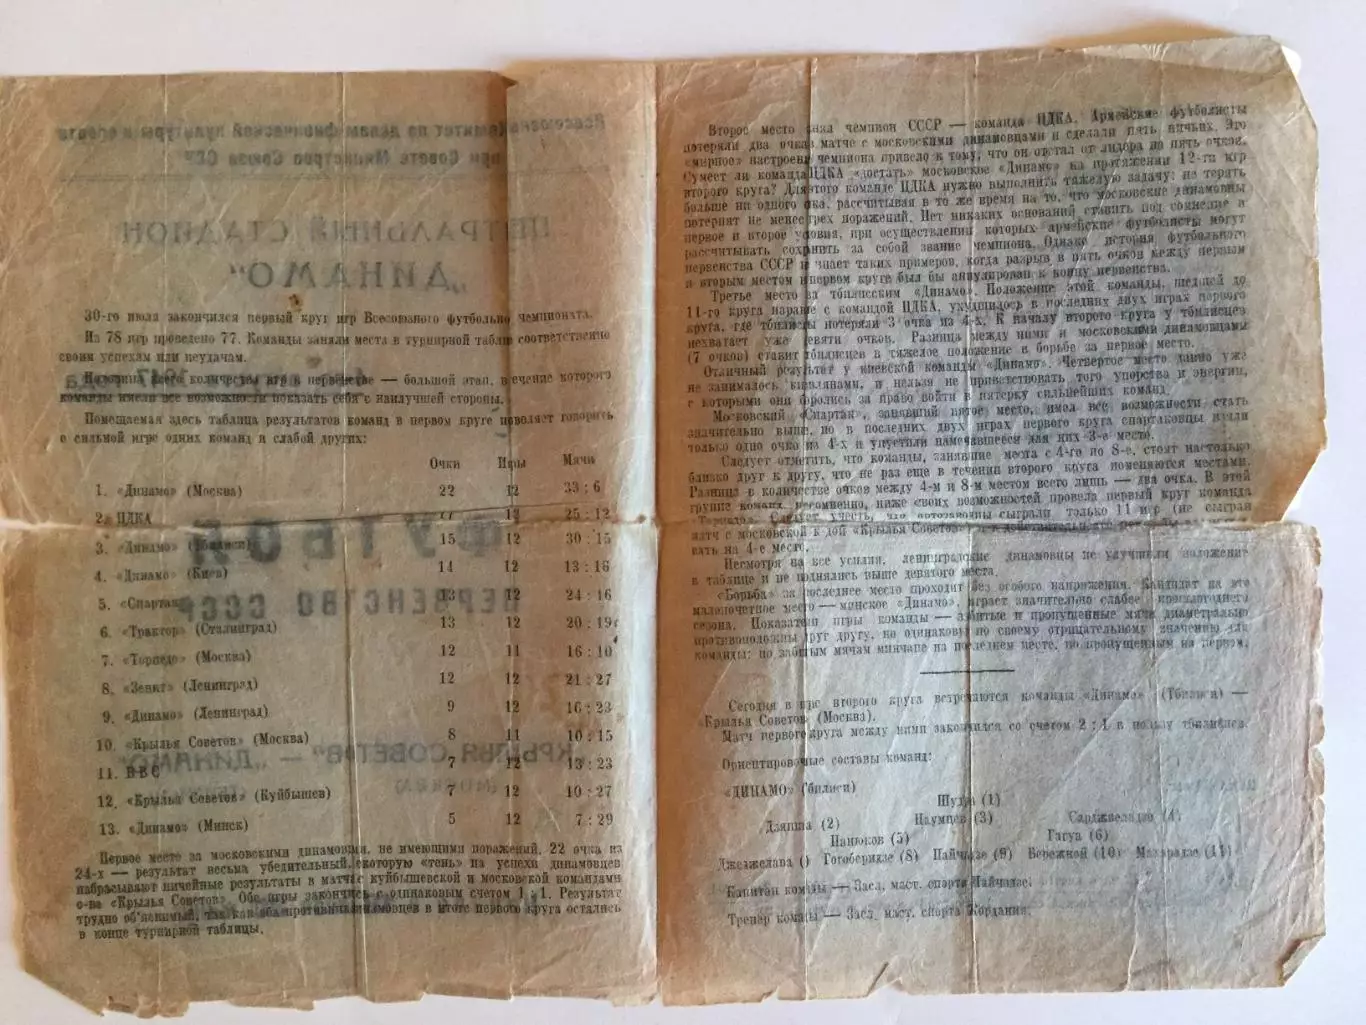 30-го июля закончился первый круг игр Всесоюзного футбольно чемпионата.
Из 78 игр проведено 77. Команды заняли места в турнирной табли соответственно
своим успехам или неудачам.
Половина всего количества игр в первенстве — большой этап, в ечение которого
команды имели все возможности показать себя с наилучшей стороны.
Помещаемая здесь таблица результатов команд в первом круге позволяет говорить
о сильной игре одних команд и слабой других:
Очки Игры Мячи
1. «Динамо» (Москва) 22 12 33 : 6
2. ЦДКА 17 12 25 : 12
3. «Динамо» (Тбилиси) 15 12 30 : 15
4. «Динамо» (Киев) 14 12 13 : 16
5. «Спартак» 13 12 24 : 16
6. «Трактор» (Сталинград) 13 12 20 : 19
7. «Торпедо» (Москва) 12 11 16 : 10
8. «Зенит» (Ленинград) 12 12 21 : 27
9. «Динамо» (Ленинград) 9 12 16 : 23
10. «Крылья Советов» (Москва) 8 11 10 : 15
11. ВВС 7 12 13 : 23
12. «Крылья Советов» (Куйбышев) 7 12 10 : 27
13. «Динамо» (Минск) 5 12 7 : 29
Первое место за московскими динамовцами, не имеющими поражений. 22 очка из
24-х — результат весьма убедительный. Некоторую «тень» на успехи динамовцев
набрасывают ничейные результаты в матчах с куйбышевской и московской командами
о-ва «Крылья Советов». Обе игры закончись с одинаковым счетом 1 : 1. Результат
трудно об'яснимый, так как оба противника динамовцев в итоге первого круга остались
в конце турнирной таблицы.
Второе место занял чемпион СССР — команда ЦДКА. Армейские футболисты
потеряли два очка в матче с московскими динамовцами и сделали пять ничьих. Это
«мирное» настроение чемпиона привело к тому, что он отстал от лидера на пять очков.
Сумеет ли команда ЦДКА «достать» московское «Динамо» на протяжении 12-ти игр
второго круга? Для этого команде ЦДКА нужно выполнить тяжелую задачу: не терять
больше ни одного очка, рассчитывая в то же время на то, что московские динамовцы
потерпят не менее трех поражений. Нет никаких оснований ставить под сомнение и
первое и второе условия, при осуществлении которых армейские футболисты могут
рассчитывать сохранить за собой звание чемпиона. Однако история футбольного
первенства СССР не знает таких примеров, когда разрыв в пять очков между первым
и вторым местом в первом круге был бы аннулирован к концу первенства.
Третье место за тбилисским «Динамо». Положение этой команды, шедшей до
11-го круга наравне с командой ЦДКА, ухудшилось в последних двух играх первого
круга, где тбилисцы потеряли 3 очка из 4-х. К началу второго круга у тбилисцев
нехватает уже девяти очков. Разница между ними и московскими динамовцами
(7 очков) ставит тбилисцев в тяжелое положение в борьбе за первое место.
Отличный результат у киевской команды «Динамо». Четвертое место давно уже
не занималось киевлянами, и нельзя не приветствовать того упорства и энергии,
с которыми они боролись за право войти в пятерку сильнейших команд.
Московский «Спартак», занявший пятое место, имел все возможности стать
значительно выше, но в последних двух играх первого круга спартаковцы взяли
только одно очко из 4-х и упустили намечавшееся для них 3-е место.
Следует отметить, что команды, занявшие места с 4-го по 8-е, стоят настолько
близко друг к другу, что не раз еще в течении второго круга поменяются местами.
Разница в количестве очков между 4-м и 8-м местом всего лишь — два очка. В этой
группе команд, несомненно, ниже своих возможностей провела первый круг команда
«Торпедо». Следует учесть, что автозаводцы сыграли только 11 игр (не сыгран
матч с московской к-дой «Крылья Советов»)
вать на 4-е место.
Несмотря на все усилия, ленинградские динамовцы не улучшили положение
в таблице и не поднялись выше девятого места.
«Борьба» за последнее место проходит без особого напряжения. Кандидат на это
малопочетное место — минское «Динамо», играет значительно слабее прошлогоднего
сезона. Показатели игры команды — забитые и пропущенные мячи диаметрально
противоположны друг другу, но одинаковы по своему отрицательному значению для
команды: по забитым мячам минчане на последнем месте, по пропущенным на первом.
Сегодня в игре второго круга встречаются команды «Динамо» (Тбилиси) —
«Крылья Советов» (Москва).
Матч первого круга между ними закончился со счетом 2 : 1 в пользу тбилисцев.
Ориентировочные составы команд:
«ДИНАМО» (Тбилиси)
Шудра (1)
Дзяпша (2) Наумцев (3) Сарджвеладзе (4)
Панюков (5) Гагуа (6)
Джеджелава ( ) Гогоберидзе (8) Пайчадзе (9) Бережной (10) Махарадзе (11)
Капитан команды — Засл. маст. спорта Пайчадзе.
Тренер команды — Засл. маст. спорта Жордания.